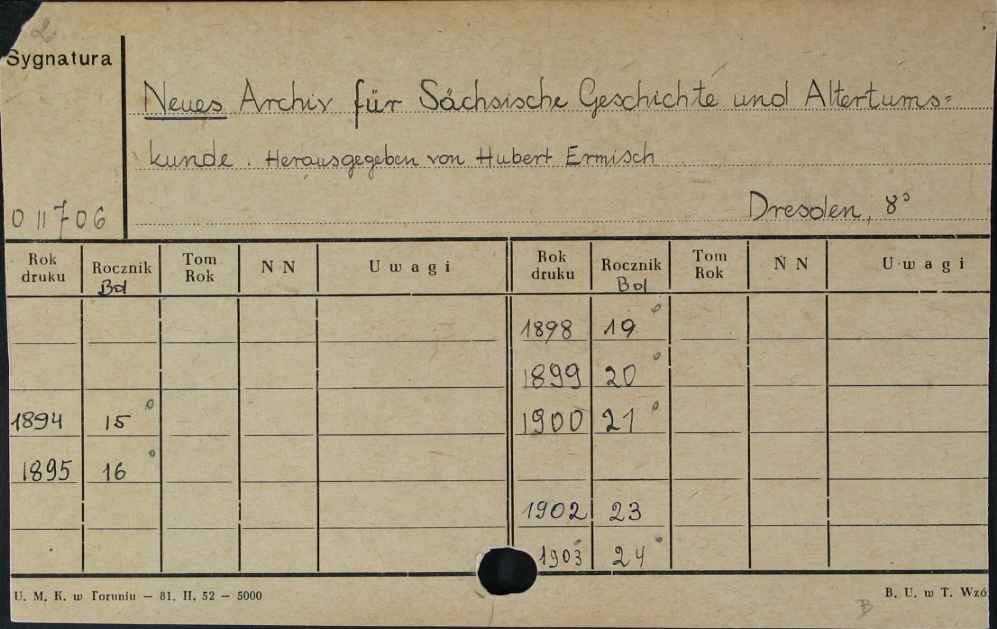 2
Sygnatura
Neues Archiv für Sächsische Geschichte und Altertums=
kunde. Herausgegeben von Hubert Ermisch
Dresden, 8°
011706
Rok druku Rocznik Bd Tom Rok N N Uwagi Rok druku Rocznik Bd Tom Rok N N Uwagi
1898 19 °
1899 20 °
1894 15 ° 1900 21 °
1895 16 °
1902 23
1903 24 °
U. M. K. w Toruniu — 81. II. 52 — 5000 B. U. w T. Wzó
B